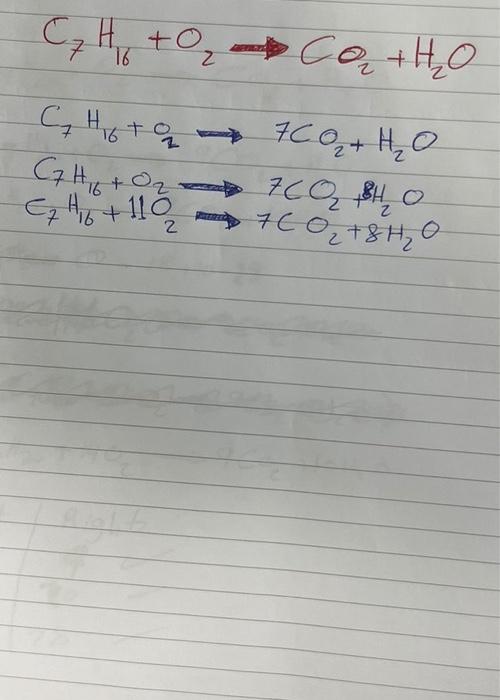 C₇H₁₆ + O₂ → CO₂ + H₂O
C₇H₁₆ + O₂ → 7CO₂ + H₂O
C₇H₁₆ + O₂ → 7CO₂ + 8H₂O
C₇H₁₆ + 11O₂ → 7CO₂ + 8H₂O